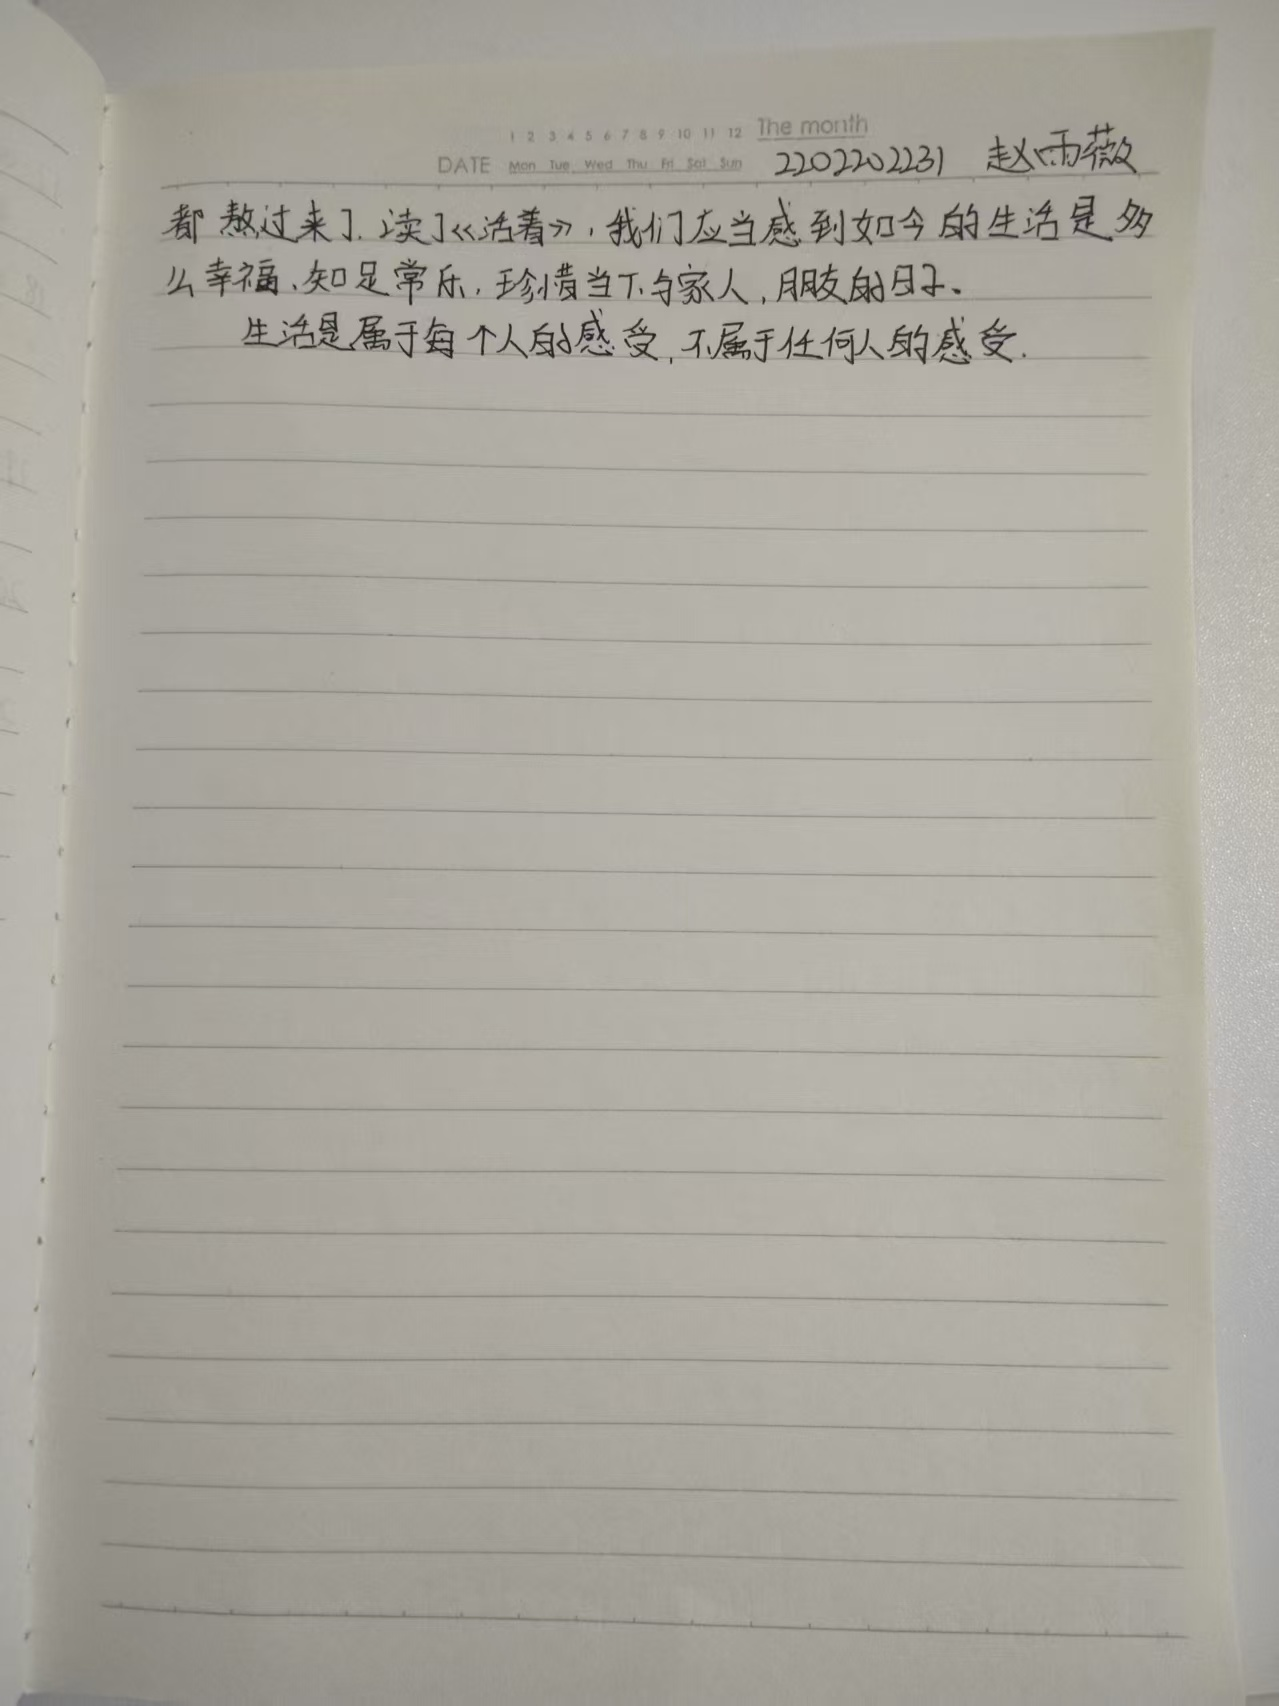 1 2 3 4 5 6 7 8 9 10 11 12 The month
DATE Mon Tue Wed Thu Fri Sat Sun 2202202231 赵雨薇
都熬过来了.读了《活着》,我们应当感到如今的生活是多
么幸福、知足常乐.珍惜当下与家人,朋友的日子。
生活是属于每个人的感受,不属于任何人的感受.